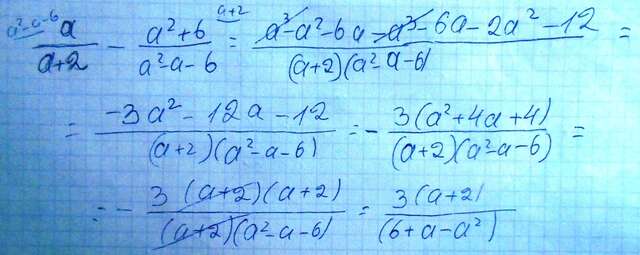 a²-a-6 a/(a+2) - (a²+6)/(a²-a-6) a+2 = (a³-a²-6a-a³-6a-2a²-12)/((a+2)(a²-a-6)) =
= (-3a²-12a-12)/((a+2)(a²-a-6)) = - 3(a²+4a+4)/((a+2)(a²-a-6)) =
= - 3(a+2)(a+2)/((a+2)(a²-a-6)) = 3(a+2)/(6+a-a²)